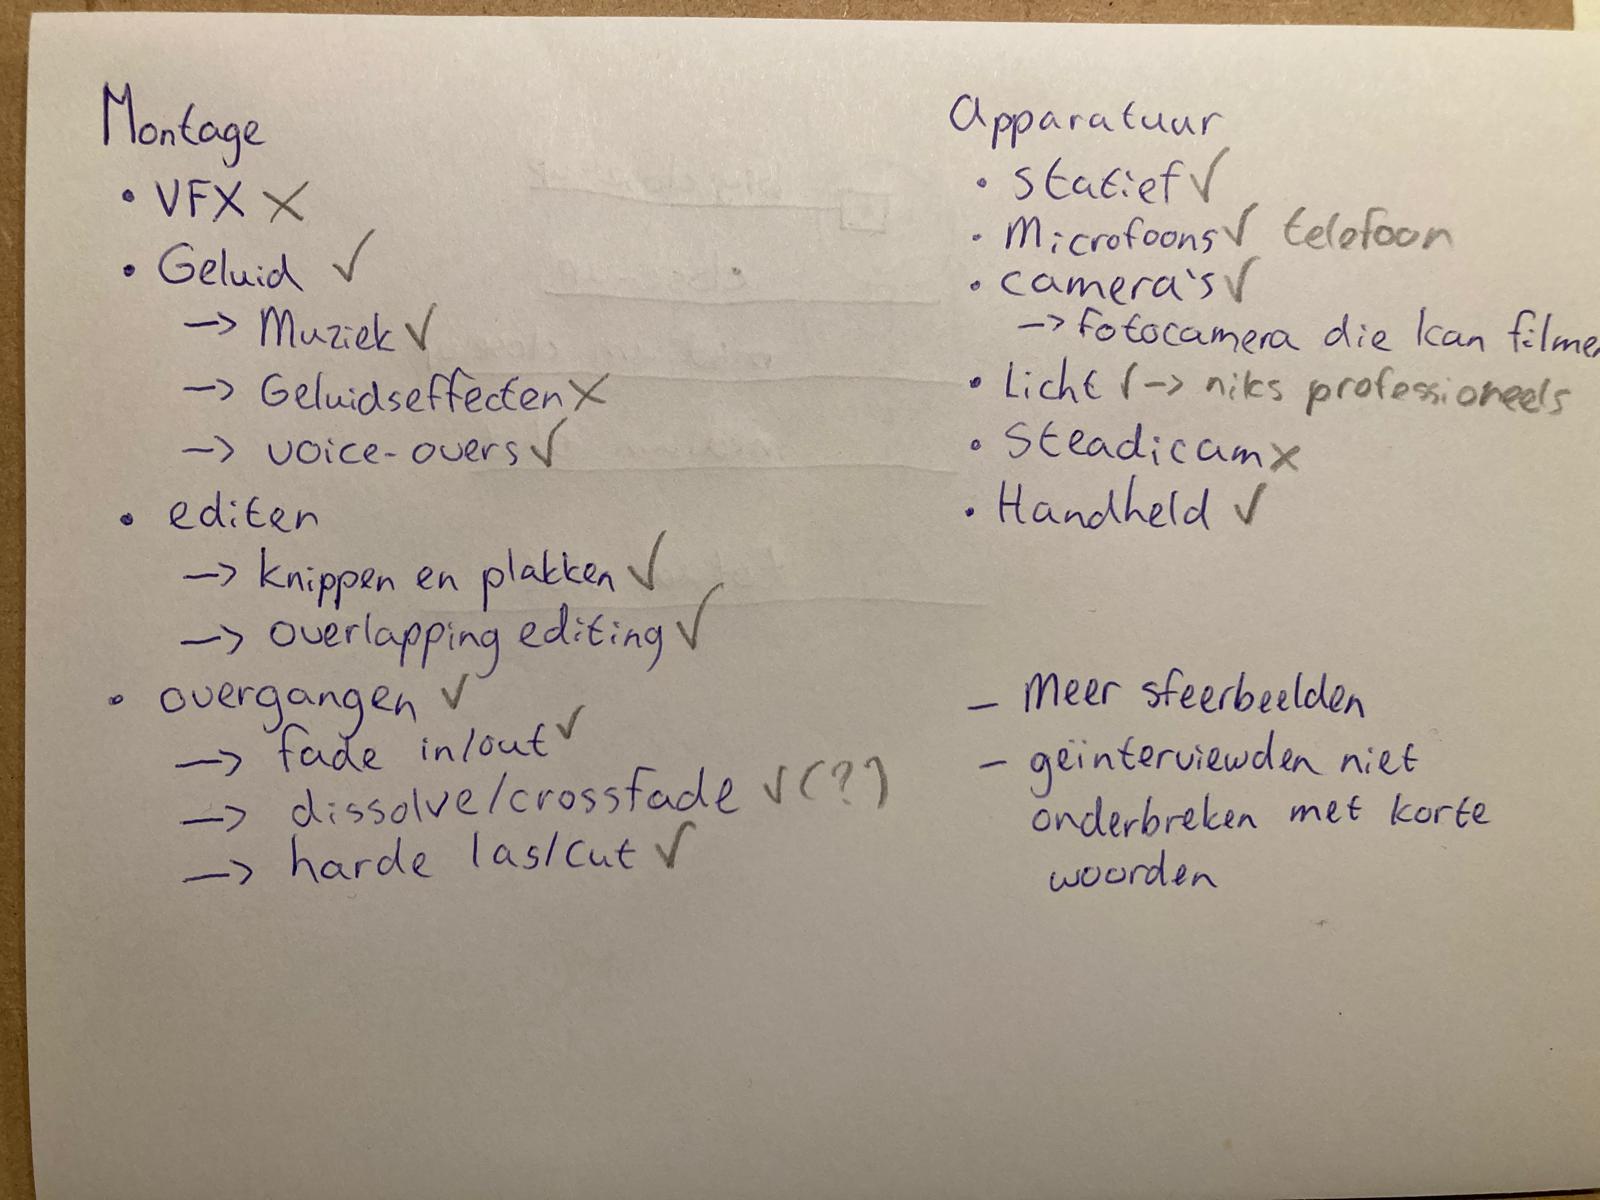 Montage
• VFX ✗
• Geluid ✓
→ Muziek ✓
→ Geluidseffecten ✗
→ voice-overs ✓
• editen
→ knippen en plakken ✓
→ overlapping editing ✓
• overgangen ✓
→ fade in/out ✓
→ dissolve/crossfade ✓ (?)
→ harde las/cut ✓
Apparatuur
• statief ✓
• Microfoons ✓ telefoon
• camera's ✓
→ fotocamera die kan filme
• Licht ✓ → niks professioneels
• Steadicam ✗
• Handheld ✓
– Meer sfeerbeelden
– geïnterviewden niet
onderbreken met korte
woorden